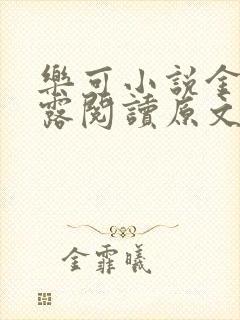 樂可小說金
露閱讀原文
金霏曦